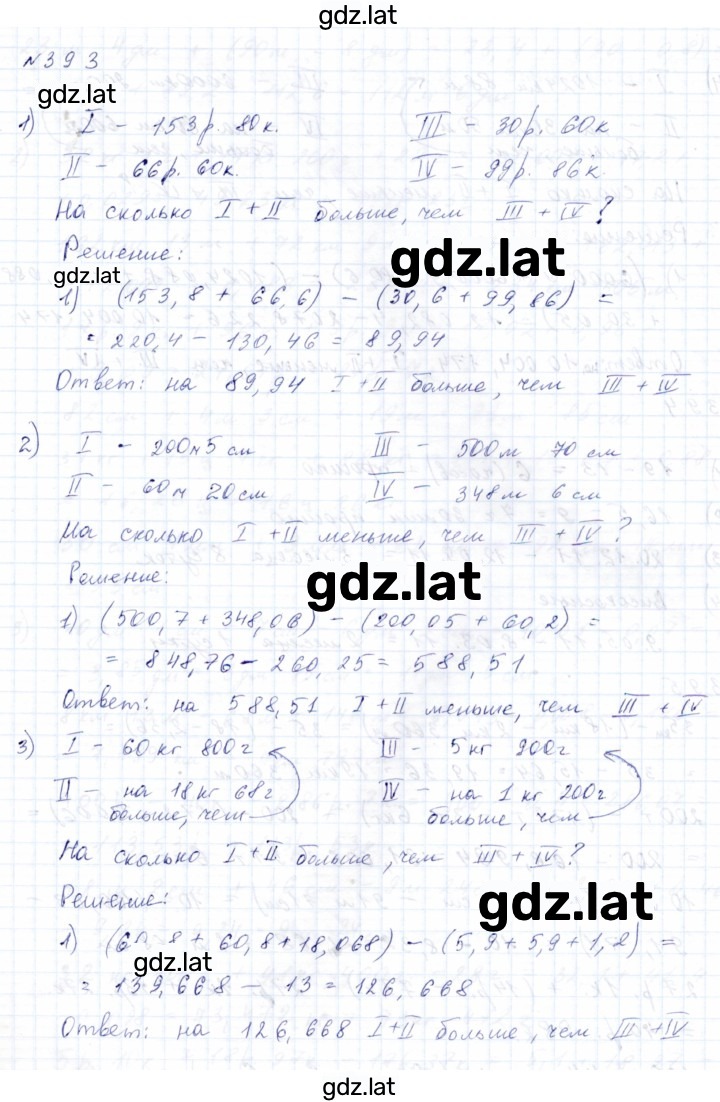 gdz.lat
№393
gdz.lat
1) I - 153р. 80к. III - 30р. 60к
II - 66р. 60к. IV - 99р. 86к.
На сколько I + II больше, чем III + IV?
Решение:
gdz.lat
gdz.lat
1) (153,8 + 66,6) - (30,6 + 99,86) =
= 220,4 - 130,46 = 89,94
Ответ: на 89,94 I + II больше, чем III + IV
2) I - 200м 5 см III - 500м 70 см
II - 60м 20см IV - 348м 6 см
На сколько I + II меньше, чем III + IV?
Решение:
gdz.lat
1) (500,7 + 348,06) - (200,05 + 60,2) =
= 848,76 - 260,25 = 588,51
Ответ: на 588,51 I + II меньше, чем III + IV
3) I - 60 кг 800 г III - 5 кг 900 г
II - на 18 кг 68 г IV - на 1 кг 200 г
больше, чем больше, чем
На сколько I + II больше, чем III + IV?
Решение:
gdz.lat
1) (60,8 + 60,8 + 18,068) - (5,9 + 5,9 + 1,2) =
gdz.lat
= 139,668 - 13 = 126,668
Ответ: на 126,668 I + II больше, чем III + IV
gdz.lat